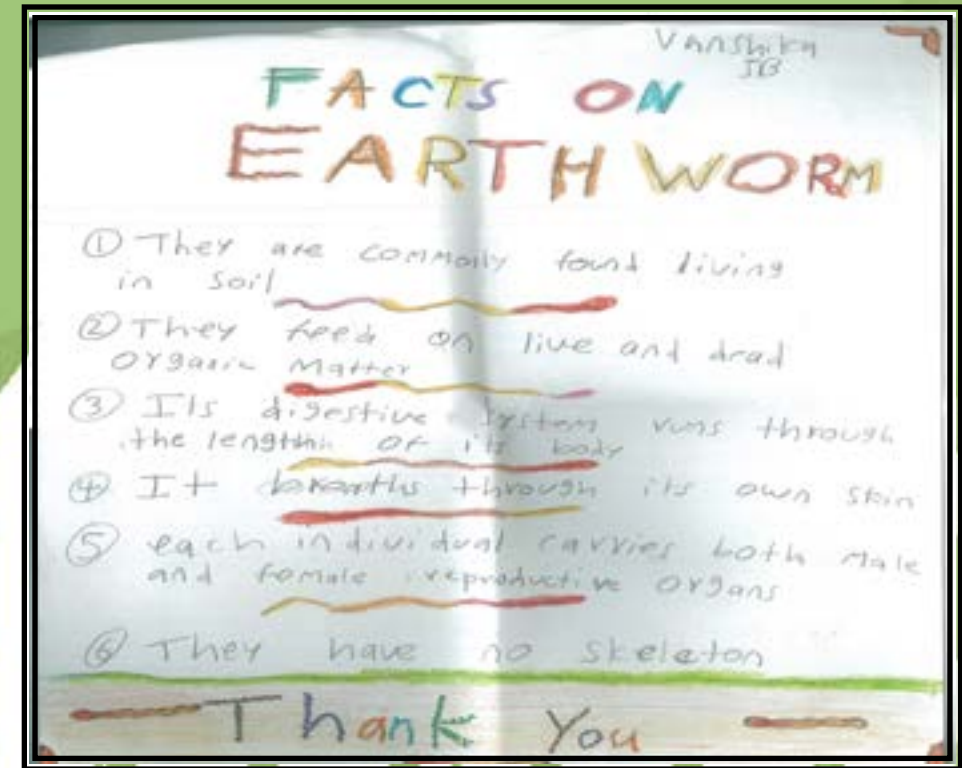 Vanshika
FACTS ON
EARTHWORM
① They are commonly found living
in soil
② They feed on live and drad
organic matter
③ Its digestive system runs through
the length of its body
④ It breaths through its own skin
⑤ each individual carries both male
and female reproductive organs
⑥ They have no skeleton
Thank You